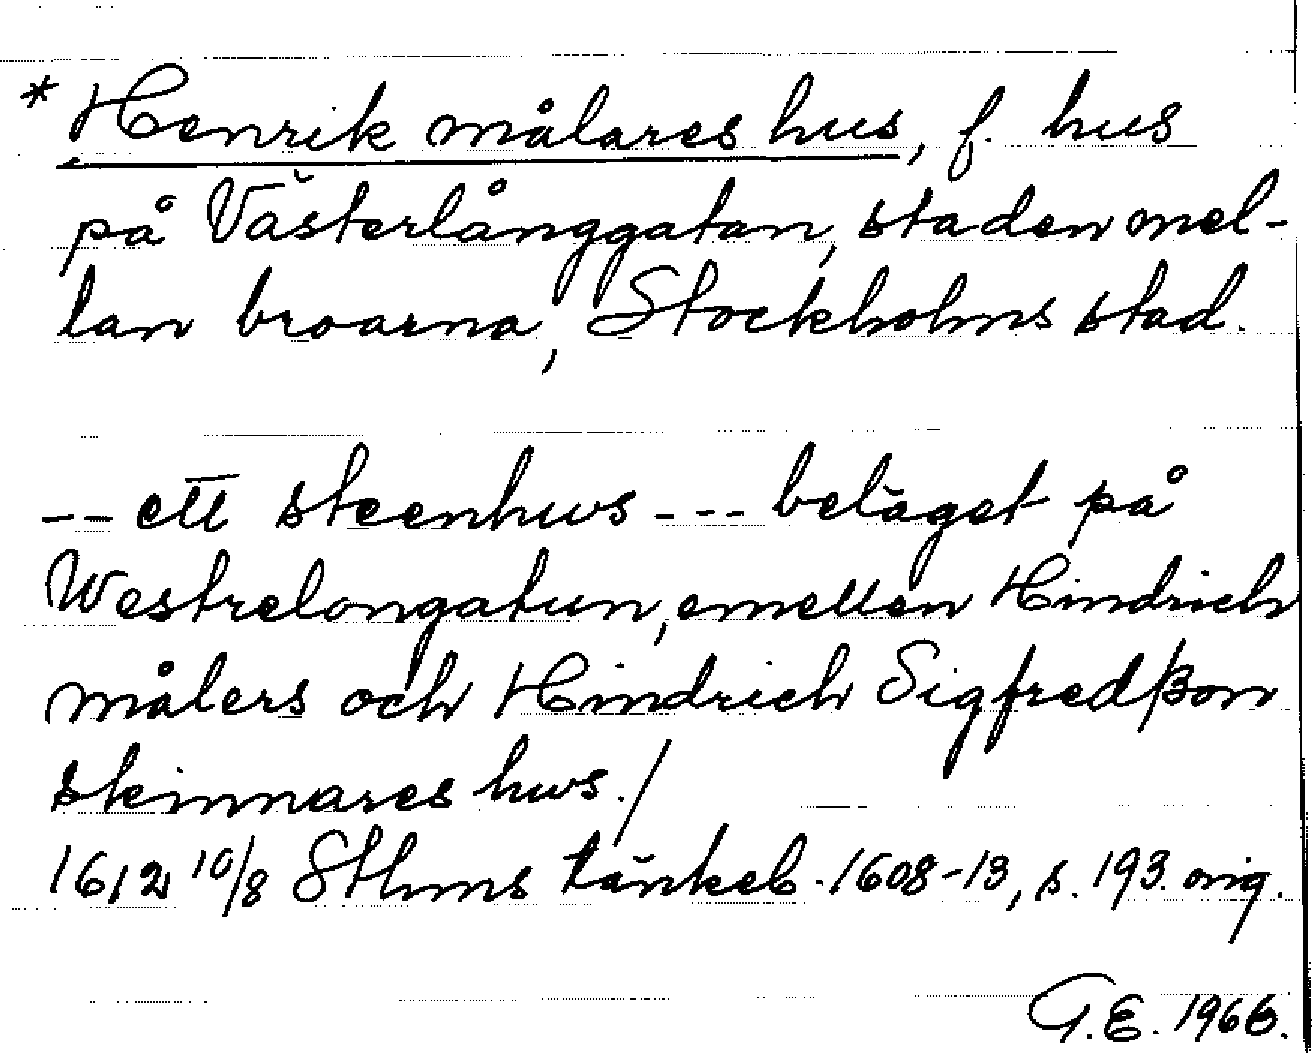 * Henrik målares hus, f. hus
på Västerlånggatan, staden mel-
lan broarna, Stockholms stad.
-- ett steenhws --- beläget på
Westrelongatun, emellen Hindrich
målers och Hindrich Sigfredßon
skinnares hws./
1612 10/8 Sthms tänkeb. 1608-13, s. 193. orig.
G.E. 1966.